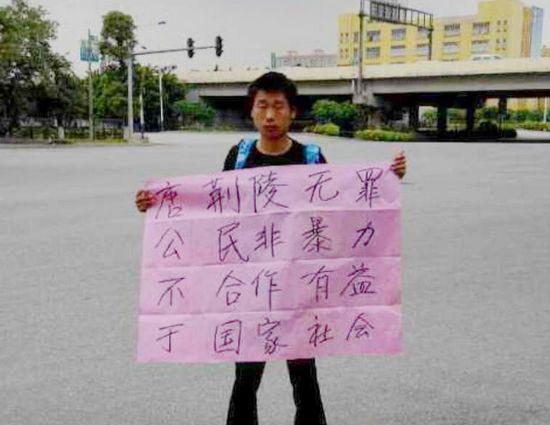 唐荆陵无罪
公民非暴力
不合作有益
于国家社会